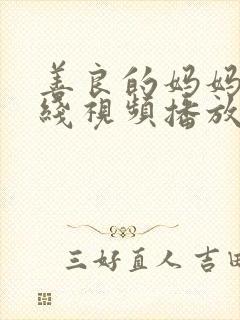 善良的妈妈
綫視頻播放
三好直人 吉田